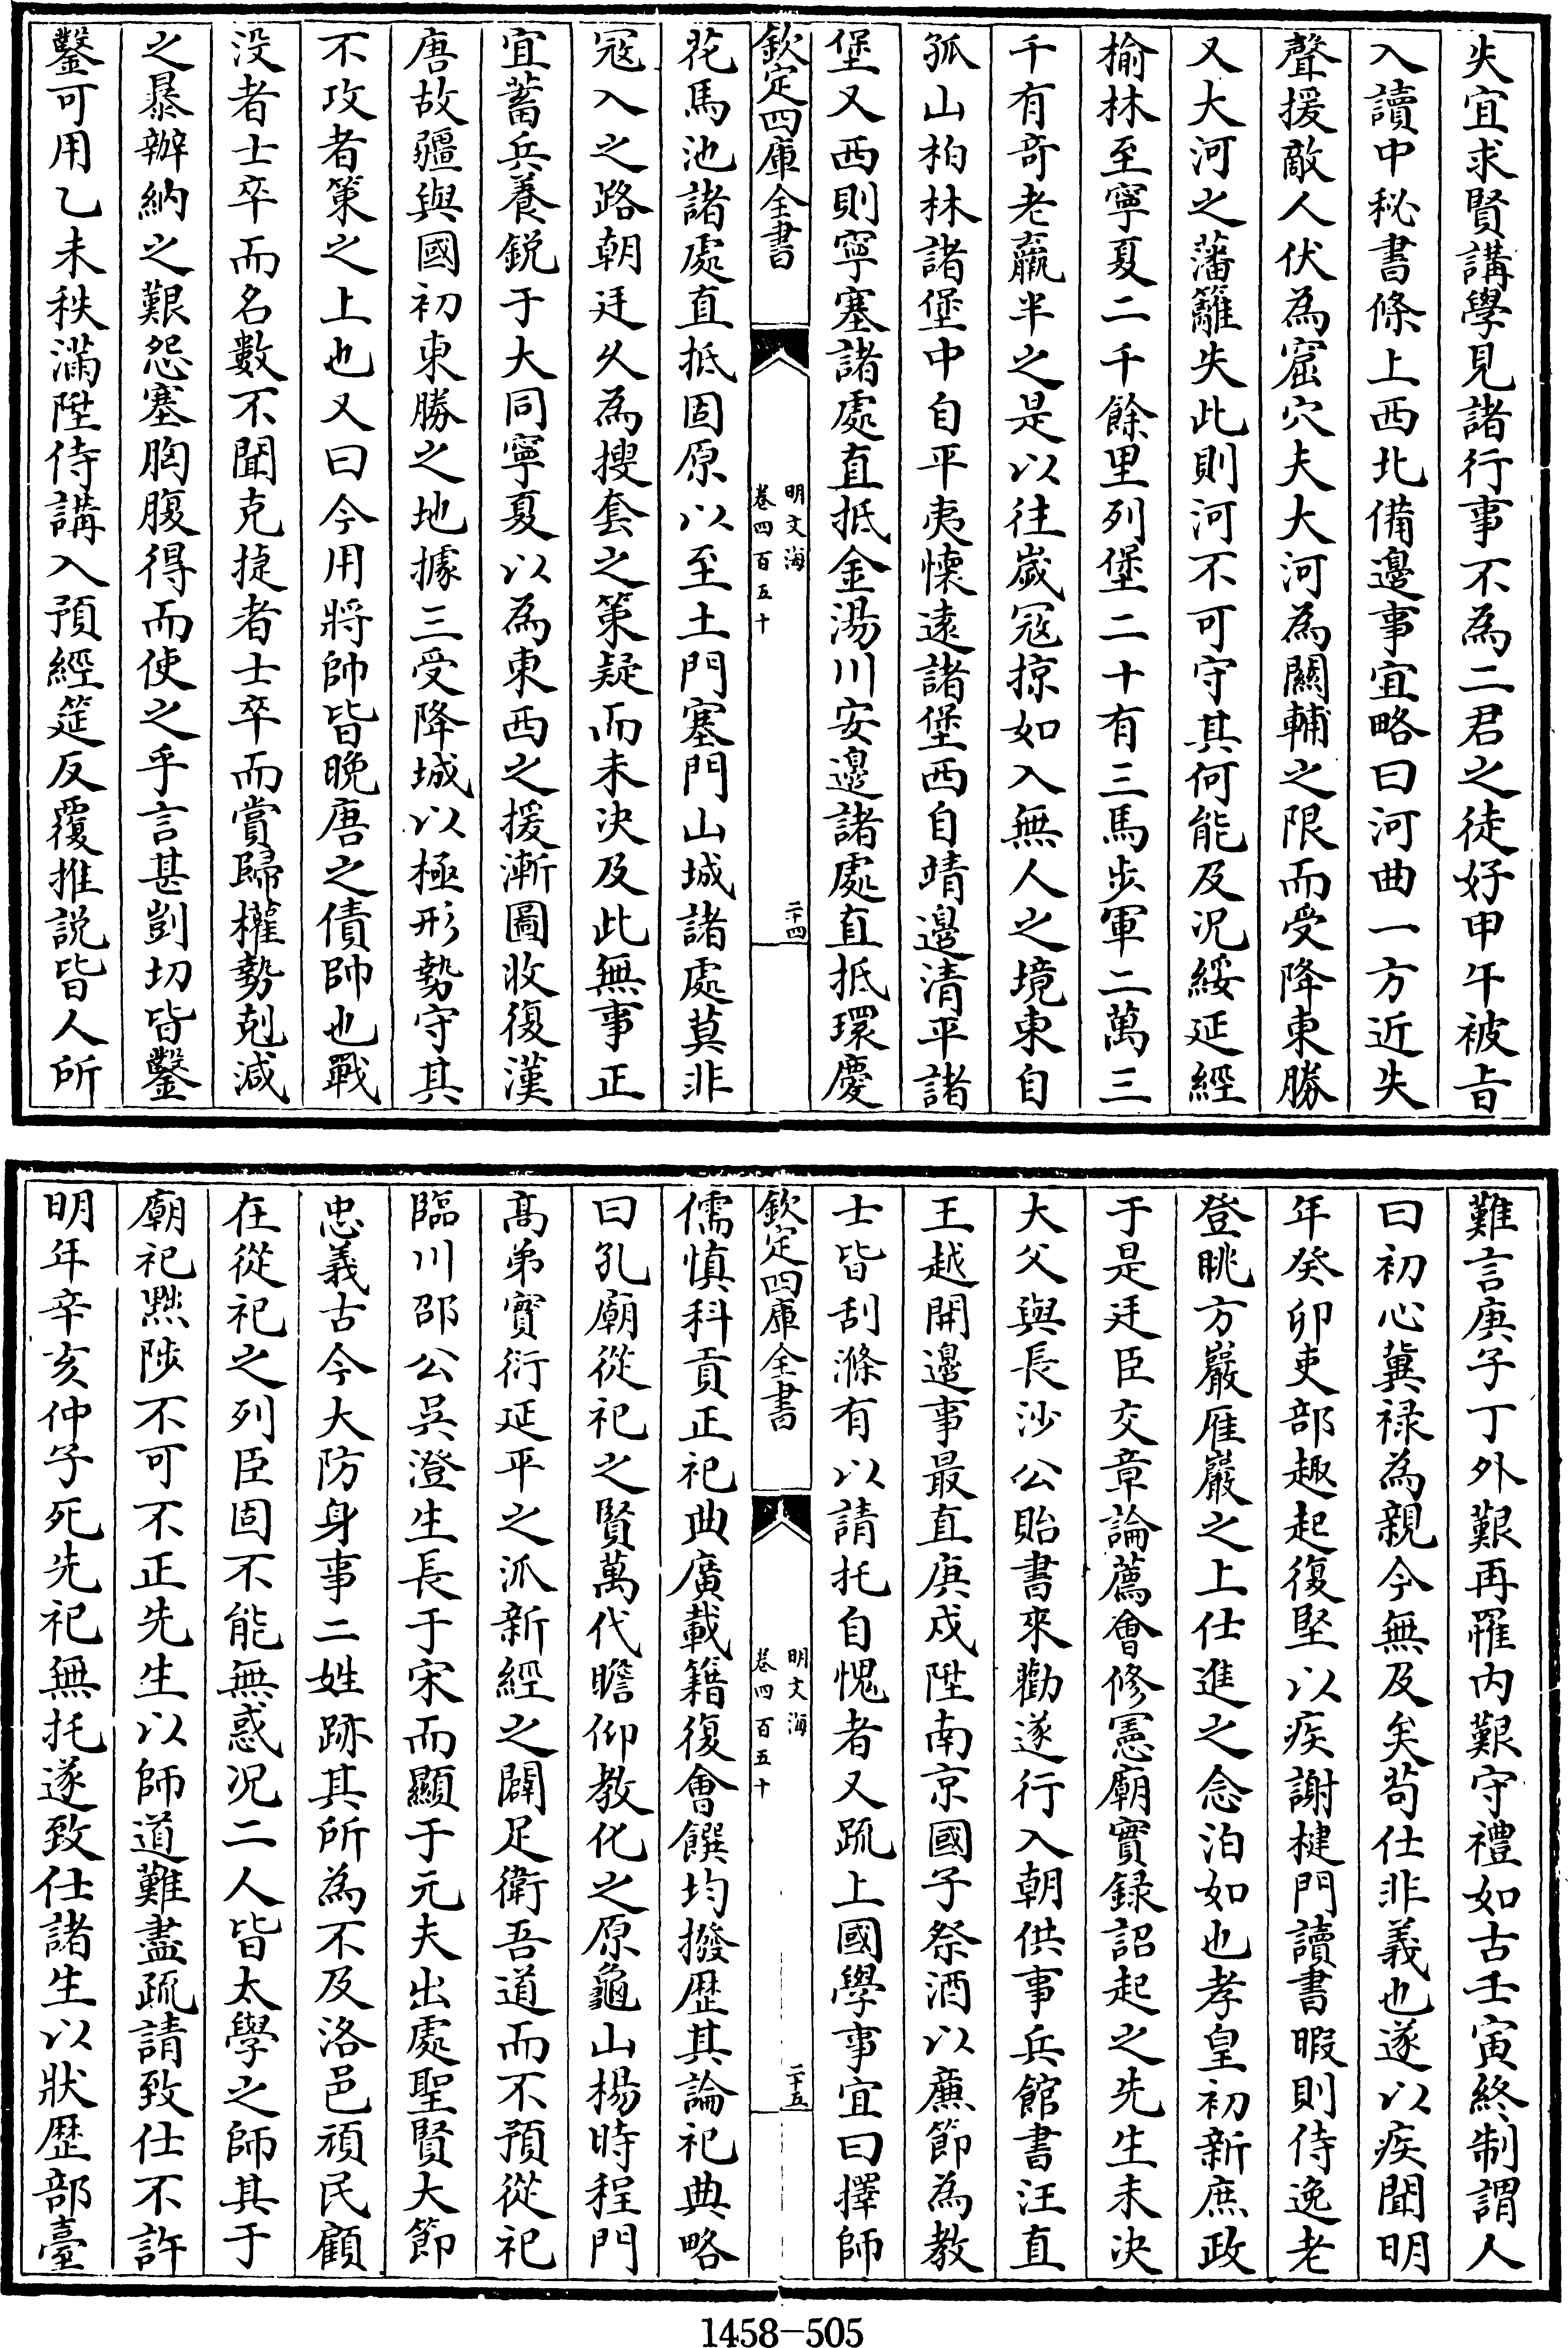 失宜求賢講學見諸行事不為二君之徒好甲午被㫖
入讀中秘書條上西北備邊事宜略曰河曲一方近失
聲援敵人伏為窟穴夫大河為關輔之限而受降東勝
又大河之藩籬失此則河不可守其何能及况綏延經
榆林至寧夏二千餘里列堡二十有三馬步軍二萬三
千有奇老羸半之是以往歲冦掠如入無人之境東自
孤山柏林諸堡中自平夷懷逺諸堡西自靖邊清平諸
堡又西則寧塞諸處直抵金湯川安邊諸處直抵環慶
欽定四庫全書
明文海
卷四百五十
二十四
花馬池諸處直抵固原以至土門塞門山城諸處莫非
冦入之路朝廷乆為搜套之策疑而未决及此無事正
宜蓄兵養鋭于大同寧夏以為東西之援漸圖收復漢
唐故疆與國初東勝之地據三受降城以極形勢守其
不攻者策之上也又曰今用將帥皆晚唐之債帥也戰
没者士卒而名數不聞克捷者士卒而賞歸權勢剋減
之暴辦納之艱怨塞胸腹得而使之乎言甚剴切皆鑿
鑿可用乙未秩滿陞侍講入預經筵反覆推説皆人所
難言庚子丁外艱再罹内艱守禮如古壬寅終制謂人
曰初心冀禄為親今無及矣苟仕非義也遂以疾聞明
年癸卯吏部趣起復堅以疾謝楗門讀書暇則侍逸老
登眺方巖雁巖之上仕進之念泊如也孝皇初新庶政
于是廷臣交章論薦會修憲廟實録詔起之先生未决
大父與長沙公貽書來勸遂行入朝供事兵館書汪直
王越開邊事最直庚戌陞南京國子祭酒以亷節為教
士皆刮滌有以請托自愧者又疏上國學事宜曰擇師
欽定四庫全書
明文海
卷四百五十
二十五
儒慎科貢正祀典廣載籍復會饌均撥歴其論祀典略
曰孔廟從祀之賢萬代瞻仰教化之原龜山楊時程門
髙弟實衍延平之派新經之闢足衛吾道而不預從祀
臨川邵公吳澄生長于宋而顯于元夫出處聖賢大節
忠義古今大防身事二姓跡其所為不及洛邑頑民顧
在從祀之列臣固不能無惑况二人皆太學之師其于
廟祀㸃陟不可不正先生以師道難盡疏請致仕不許
明年辛亥仲子死先祀無托遂致仕諸生以狀歴部臺
1458-505